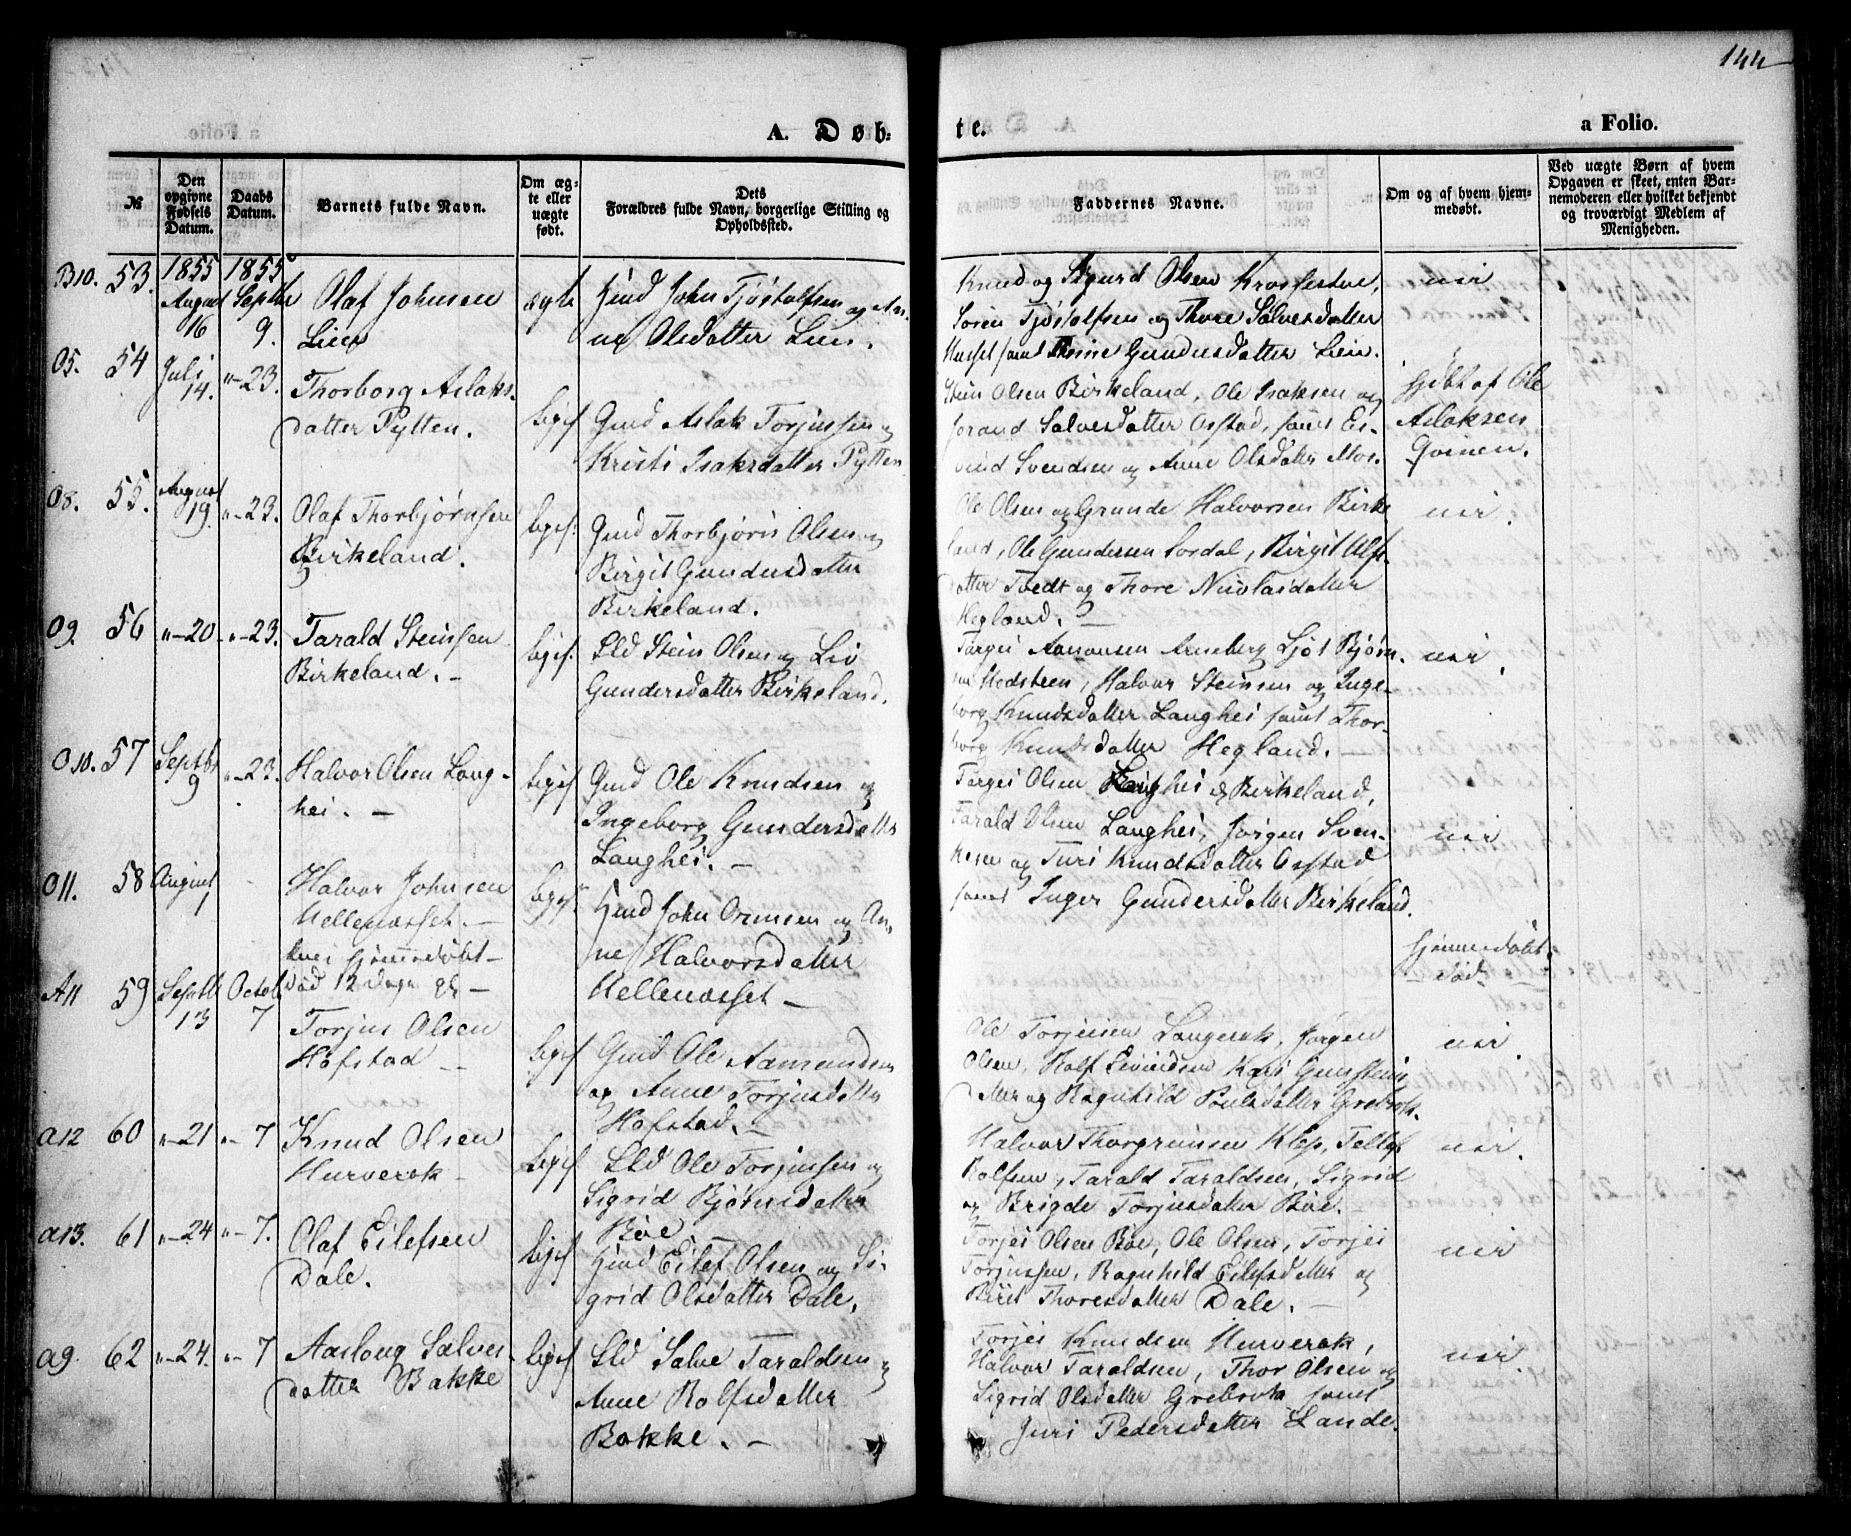 144
A. Døb-
te.
a Folio.
№
Den opgivne Fødsels Datum.
Daabs Datum.
Barnets fulde Navn.
Om ægte eller uægte født.
Dets Forældres fulde Navn, borgerlige Stilling og Opholdssted.
Faddernes Navne.
Om og af hvem hjemmedøbt.
Ved uægte Børn af hvem Opgaven er skeet, enten Barnemoderen eller hvilket bekjendt og troværdigt Medlem af Menigheden.
B10. 53. 1855 August 16 1855 Septbr 9.
Olaf Johnsen
Lien
ægte
Gmd John Tjøstolfsen og An-
ne Olsdatter Lien.
Knud og Sigurd Olsen
Søren Tjøstolfsen og Thore Salvesdatter
samt Anne Gundersdatter Lien.
nei
O5. 54 Juli 14. "-23.
Thorborg Aslaks-
datter Pytten.
ligesf
Gmd Aslak Torjussen og
Kristi Isaksdatter Pytten
Stein Olsen Birkeland, Ole Isaksen og
Jorand Salvesdatter Ostad, samt Ei-
vind Svendsen og Anne Olsdatter
hjdbt af Ole
Aslaksen
Qvinen.
O8. 55. August 19. "-23.
Olaf Thorbjørnsen
Birkeland.
ligesf.
Gmd Thorbjørn Olsen og
Birgit Gundersdatter
Birkeland.
Ole Olsen og Grunde Halvorsen Birke
land, Ole Gundersen Sordal, Birgit Olsd
atter Tvedt og Thore Nicolaidatter
Hegland. -
nei.
O9. 56 "-20 "-23.
Tarald Steinsen
Birkeland. -
ligesf.
Lld Stein Olsen og Liv
Gundersdatter Birkeland.
Torgei Aanonsen Arneberg Ljøt Bjørn-
Halvor Steinsen og Inge-
borg Knudsdatter Langhei samt Thor-
borg Knudsdatter Hegland. -
nei.
O10. 57 Septbr 9 "-23.
Halvor Olsen Lang-
hei. -
ligesf
Gmd Ole Knudsen og
Ingeborg Gundersdatter
Langhei. -
Torgei Olsen Langhei Birkeland,
Tarald Olsen Langhei, Jørgen Sven-
og Turi Knudsdatter Ostad
samt Inger Gundersdatter Birkeland.
nei
O11. 58 August 1
Halvor Johnsen
Uellenæsset. -
hjemmedøbt -
død 12 Dage gl. -
ligesf.
Gmd John Ormsen og An-
ne Halvorsdatter
Uellenæsset -
hjemmedøbt.
død
A11 59 Septbr 13 Octob 7
Torjus Olsen
Hofstad --
ligesf
Gmd Ole Aamundsen
og Anne Torjusdatter
Hofstad. -
Ole Torjusen Langerak, Jørgen
Olsen, Rolf Eivindsen Kari Gunsteins
datter og Ragnhild Poulsdatter Grebrok.
nei
A12 60 "-21 "- 7
Knud Olsen
Hurverok -
ligesf
Lld Ole Torjussen og
Sigrid Bjørnsdatter
Bøe
Halvor Thorgrimsen Klep, Tellef
Rolfsen, Tarald Taraldsen, Sigrid
og Brigde Torjusdatter Bøe. -
nei.
A13. 61 "-24 "- 7.
Olaf Eilefsen
Dale.
ligesf
Gmd Eilef Olsen og Si-
grid Olsdatter Dale.
Torjei Olsen Bøe, Ole Olsen, Torjei
Torjussen, Ragnhild Eilefsdatter og
Birit Thoresdatter Dale. -
nei
A9. 62 "-24. "- 7
Aaslaug Salves
datter Bakke
ligesf
Lld Salve Taraldsen og
Anne Rolfsdatter
Bakke. -
Torjei Knudsen Hurverok,
Halvor Taraldsen, Thor Olsen og
Sigrid Olsdatter Grebrok samt
Juri Pedersdatter Lande.
nei.